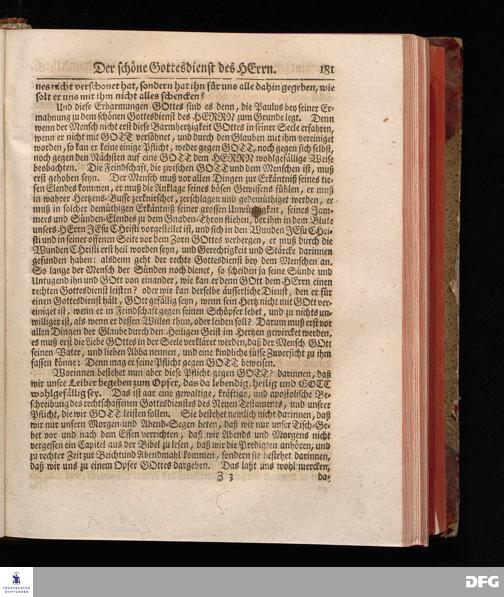 Der schöne Gottesdienst des HErrn. 181
nes nicht verschonet hat, sondern hat ihn für uns alle dahin gegeben, wie
solt er uns mit ihm nicht alles schencken?
Und diese Erbarmungen GOttes sind es denn, die Paulus bey seiner Er-
mahnung zu dem schönen Gottesdienst des HERRN zum Grunde legt. Denn
wenn der Mensch nicht erst diese Barmhertzigkeit GOttes in seiner Seele erfahren,
wenn er nicht mit GOTT versöhnet, und durch den Glauben mit ihm vereiniget
worden, so kan er keine einige Pflicht, weder gegen GOTT, noch gegen sich selbst,
noch gegen den Nächsten auf eine GOTT dem HERRN wohlgefällige Weise
beobachten. Die Feindschaft, die zwischen GOTT und dem Menschen ist, muß
erst gehoben seyn. Der Mensch muß vor allen Dingen zur Erkäntniß seines tie-
fen Elendes kommen, er muß die Anklage seines bösen Gewissens fühlen, er muß
in wahrer Hertzens-Busse zerknirschet, zerschlagen und gedemüthiget werden, er
muß in solcher demüthigen Erkäntniß seiner grossen Unwürdigkeit, seines Jam-
mers und Sünden-Elendes zu dem Gnaden-Thron fliehen, der ihm in dem Blute
unsers HErrn JEsu Christi vorgestellet ist, und sich in den Wunden JEsu Chri-
sti und in seiner offenen Seite vor dem Zorn GOttes verbergen, er muß durch die
Wunden Christi erst heil worden seyn, und Gerechtigkeit und Stärcke darinnen
gefunden haben: alsdenn geht der rechte Gottesdienst bey dem Menschen an.
So lange der Mensch der Sünden noch dienet, so scheiden ja seine Sünde und
Untugend ihn und GOtt von einander, wie kan er denn GOtt dem HErrn einen
rechten Gottesdienst leisten? oder wie kan derselbe äusserliche Dienst, den er für
einen Gottesdienst hält, GOtt gefällig seyn, wenn sein Hertz nicht mit GOtt ver-
einiget ist, wenn er in Feindschaft gegen seinen Schöpfer lebet, und zu nichts un-
williger ist, als wenn er dessen Willen thun, oder leiden soll? Darum muß erst vor
allen Dingen der Glaube durch den Heiligen Geist im Hertzen gewircket werden,
es muß erst die Liebe GOttes in der Seele verkläret werden, daß der Mensch GOtt
seinen Vater, und lieben Abba nennen, und eine kindliche süsse Zuversicht zu ihm
fassen könne: Denn mag er seine Pflicht gegen GOTT beweisen.
Worinnen bestehet nun aber diese Pflicht gegen GOTT? darinnen, daß
wir unsre Leiber begeben zum Opfer, das da lebendig, heilig und GOTT
wohlgefällig sey. Das ist gar eine gewaltige, kräftige, und apostolische Be-
schreibung des rechtschaffenen Gottesdienstes des Neuen Testaments, und unsrer
Pflicht, die wir GOTT leisten sollen. Sie bestehet nemlich nicht darinnen, daß
wir nur unsern Morgen- und Abend-Segen beten, daß wir nur unser Tisch-Ge-
bet vor und nach dem Essen verrichten, daß wir Abends und Morgens nicht
vergessen ein Capitel aus der Bibel zu lesen, daß wir die Predigten anhören, und
zu rechter Zeit zur Beicht und Abendmahl kommen, sondern sie bestehet darinnen,
daß wir uns zu einem Opfer GOttes dargeben. Das laßt uns wohl mercken,
Z 3 da-
FRANCKESCHE
STIFTUNGEN
DFG